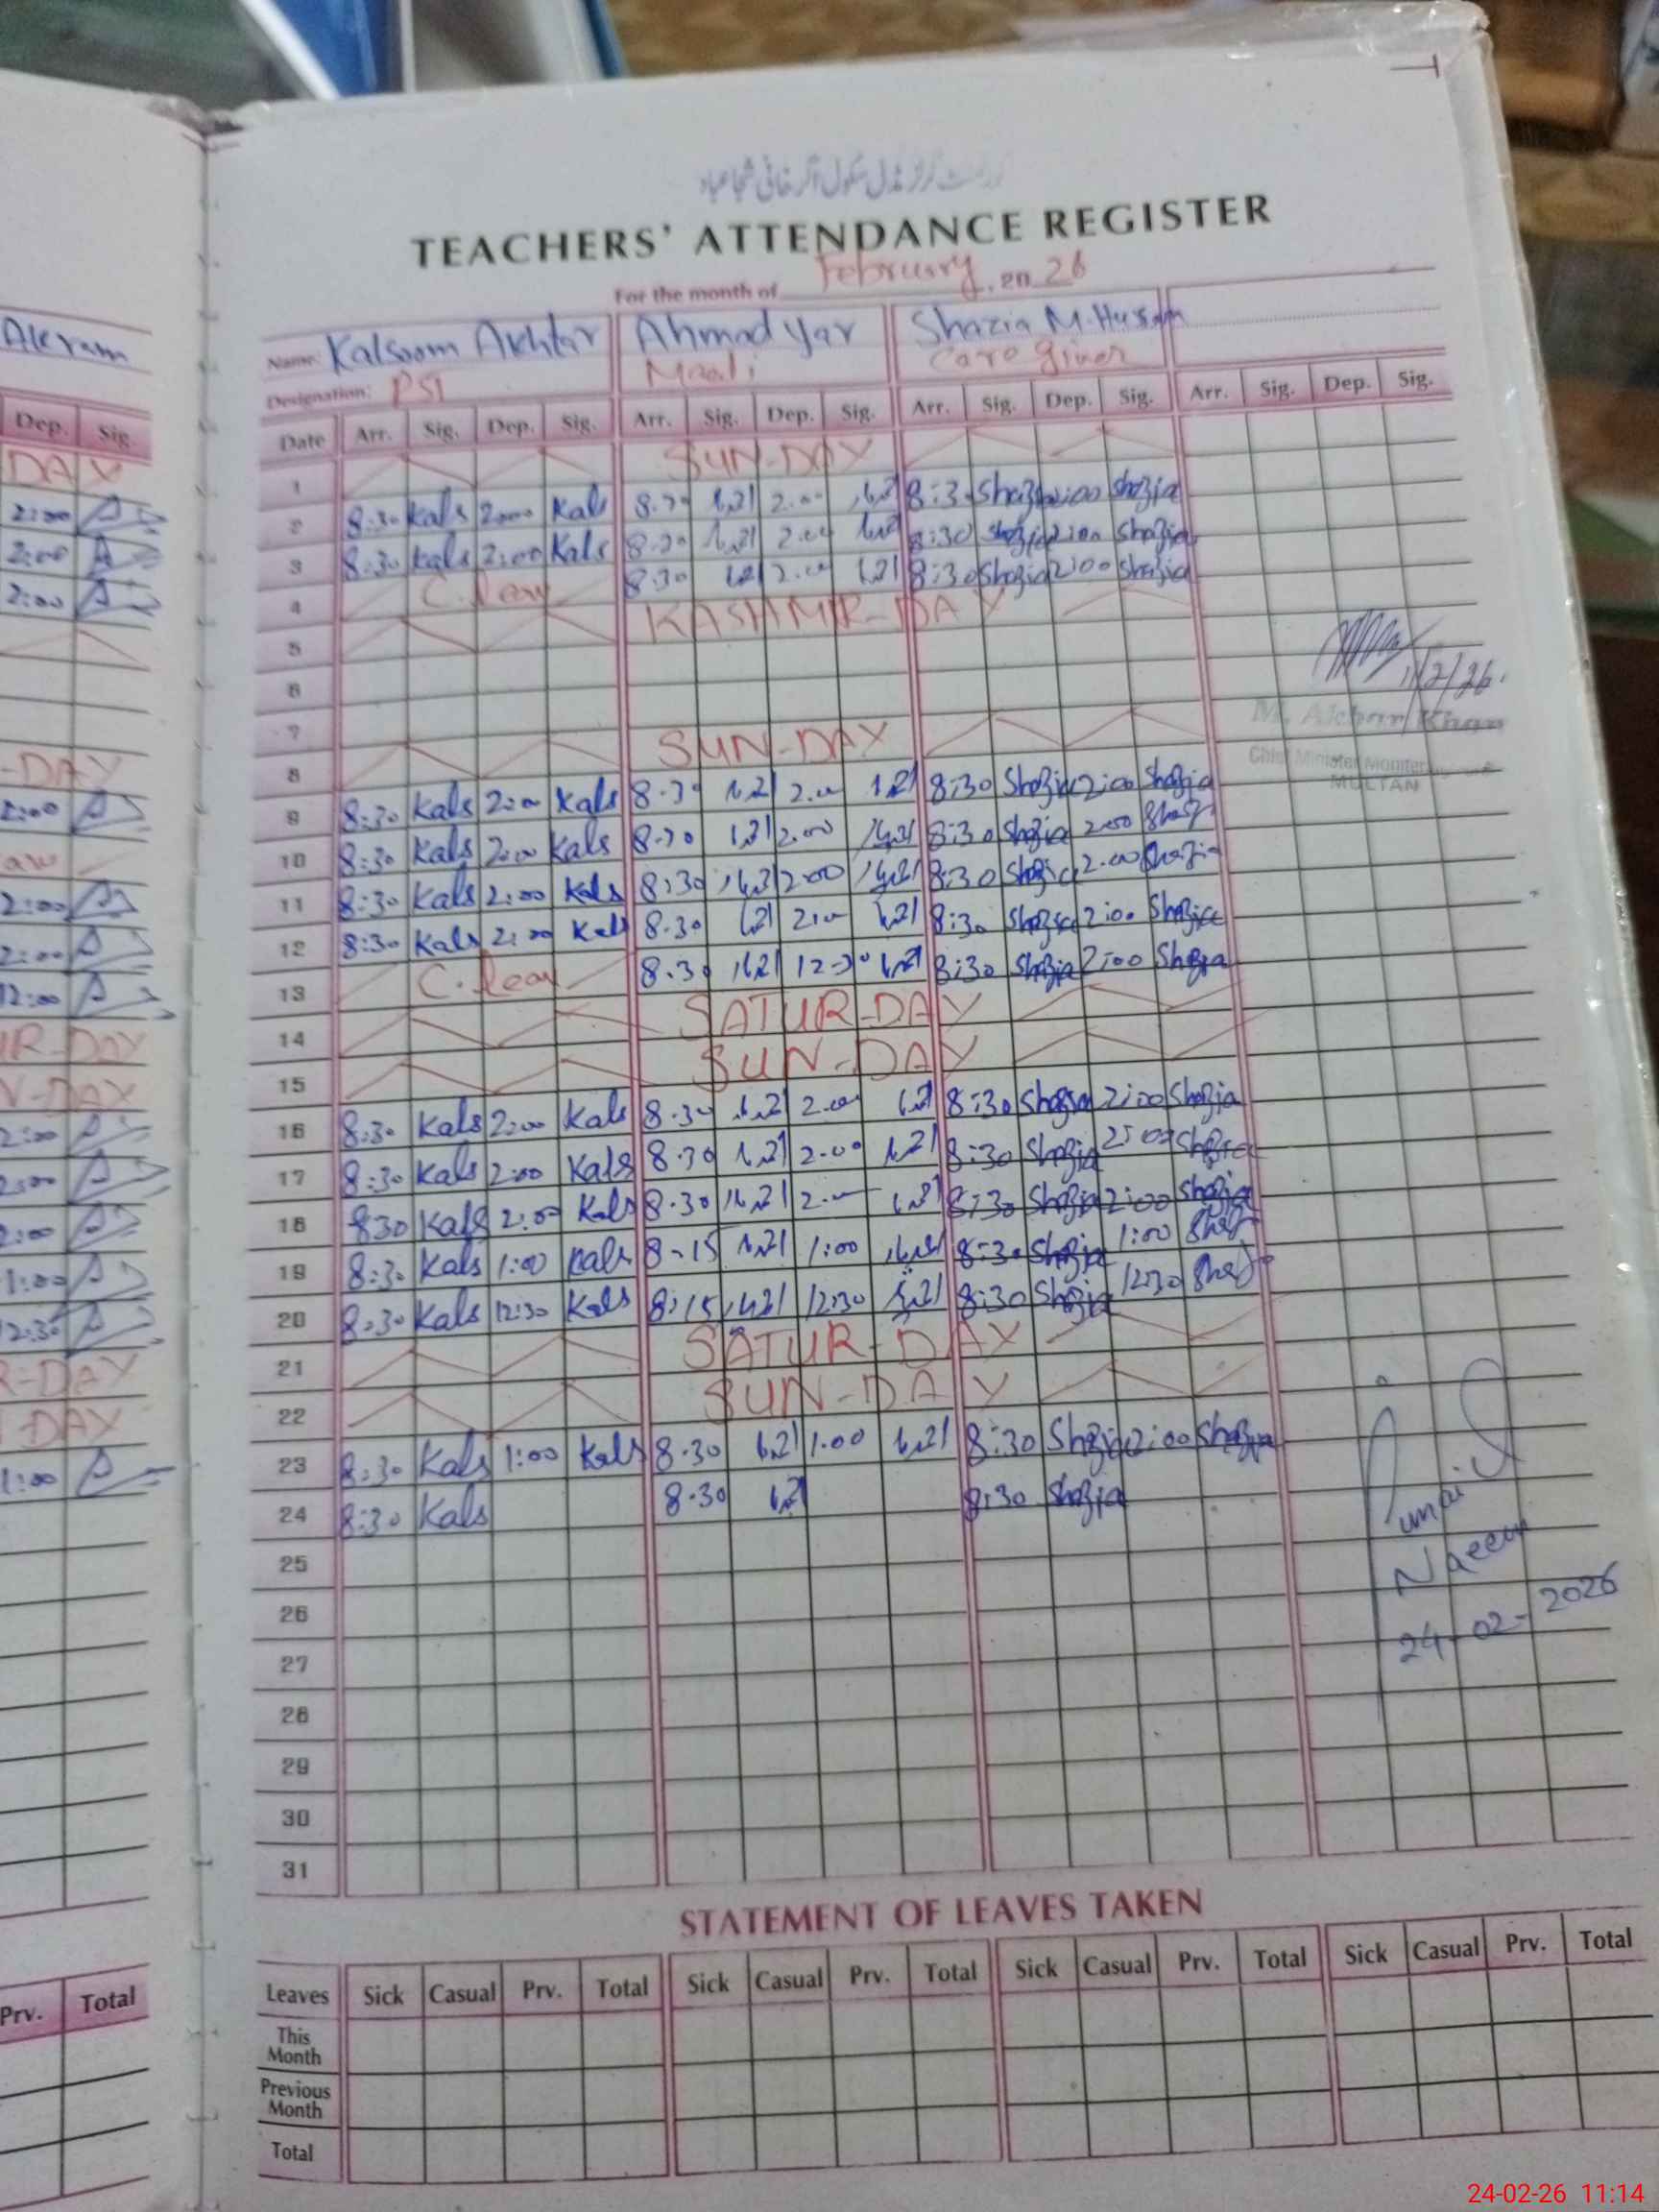 گورنمنٹ گرلز مڈل سکول
TEACHERS' ATTENDANCE REGISTER
For the month of February, 20 26
Name: Kalsoom Akhtar Ahmad Yar Shazia M. Husain
Designation: PST Maali Care giver
Date Arr. Sig. Dep. Sig. Arr. Sig. Dep. Sig. Arr. Sig. Dep. Sig. Arr. Sig. Dep. Sig.
1 SUN-DAY
2 8:30 Kals 2:00 Kals 8.30 2.00 8:30 Shazia 2:00 Shazia
3 8:30 Kals 2:00 Kals 8.30 2.00 8:30 Shazia 2:00 Shazia
4 C.leav 8.30 2.00 8:30 Shazia 2:00 Shazia
5 KASHMIR-DAY
6
7
8 SUN-DAY
9 8:30 Kals 2:00 Kals 8.30 2.00 8:30 Shazia 2:00 Shazia
10 8:30 Kals 2:00 Kals 8.30 2.00 8:30 Shazia 2:00 Shazia
11 8:30 Kals 2:00 Kals 8:30 2:00 8:30 Shazia 2:00 Shazia
12 8:30 Kals 2:00 Kals 8.30 2:00 8:30 Shazia 2:00 Shazia
13 C.leav 8.30 12.30 8:30 Shazia 2:00 Shazia
14 SATUR-DAY
15 SUN-DAY
16 8:30 Kals 2:00 Kals 8.30 2.00 8:30 Shazia 2:00 Shazia
17 8:30 Kals 2:00 Kals 8.30 2.00 8:30 Shazia 2:00 Shazia
18 830 Kals 2:00 Kals 8.30 2.00 8:30 Shazia 2:00 Shazia
19 8:30 Kals 1:00 Kals 8.15 1:00 8:30 Shazia 1:00
20 8:30 Kals 12:30 Kals 8:15 12:30 8:30 Shazia 12:30
21 SATUR-DAY
22 SUN-DAY
23 8:30 Kals 1:00 Kals 8.30 1.00 8:30 Shazia 2:00 Shazia
24 8:30 Kals 8.30 8:30 Shazia
25
26
27
28
29
30
31
M. Akbar Khan
MULTAN
Naeem
24-02-2026
STATEMENT OF LEAVES TAKEN
Leaves Sick Casual Prv. Total Sick Casual Prv. Total Sick Casual Prv. Total Sick Casual Prv. Total
This Month
Previous Month
Total
Akram
Dep. Sig.
DAY
2:00
2:00
2:00
-DAY
2:00
2:00
2:00
12:00
UR-DAY
N-DAY
2:00
2:00
2:00
1:00
12:30
R-DAY
DAY
1:00
Prv. Total
24-02-26 11:14